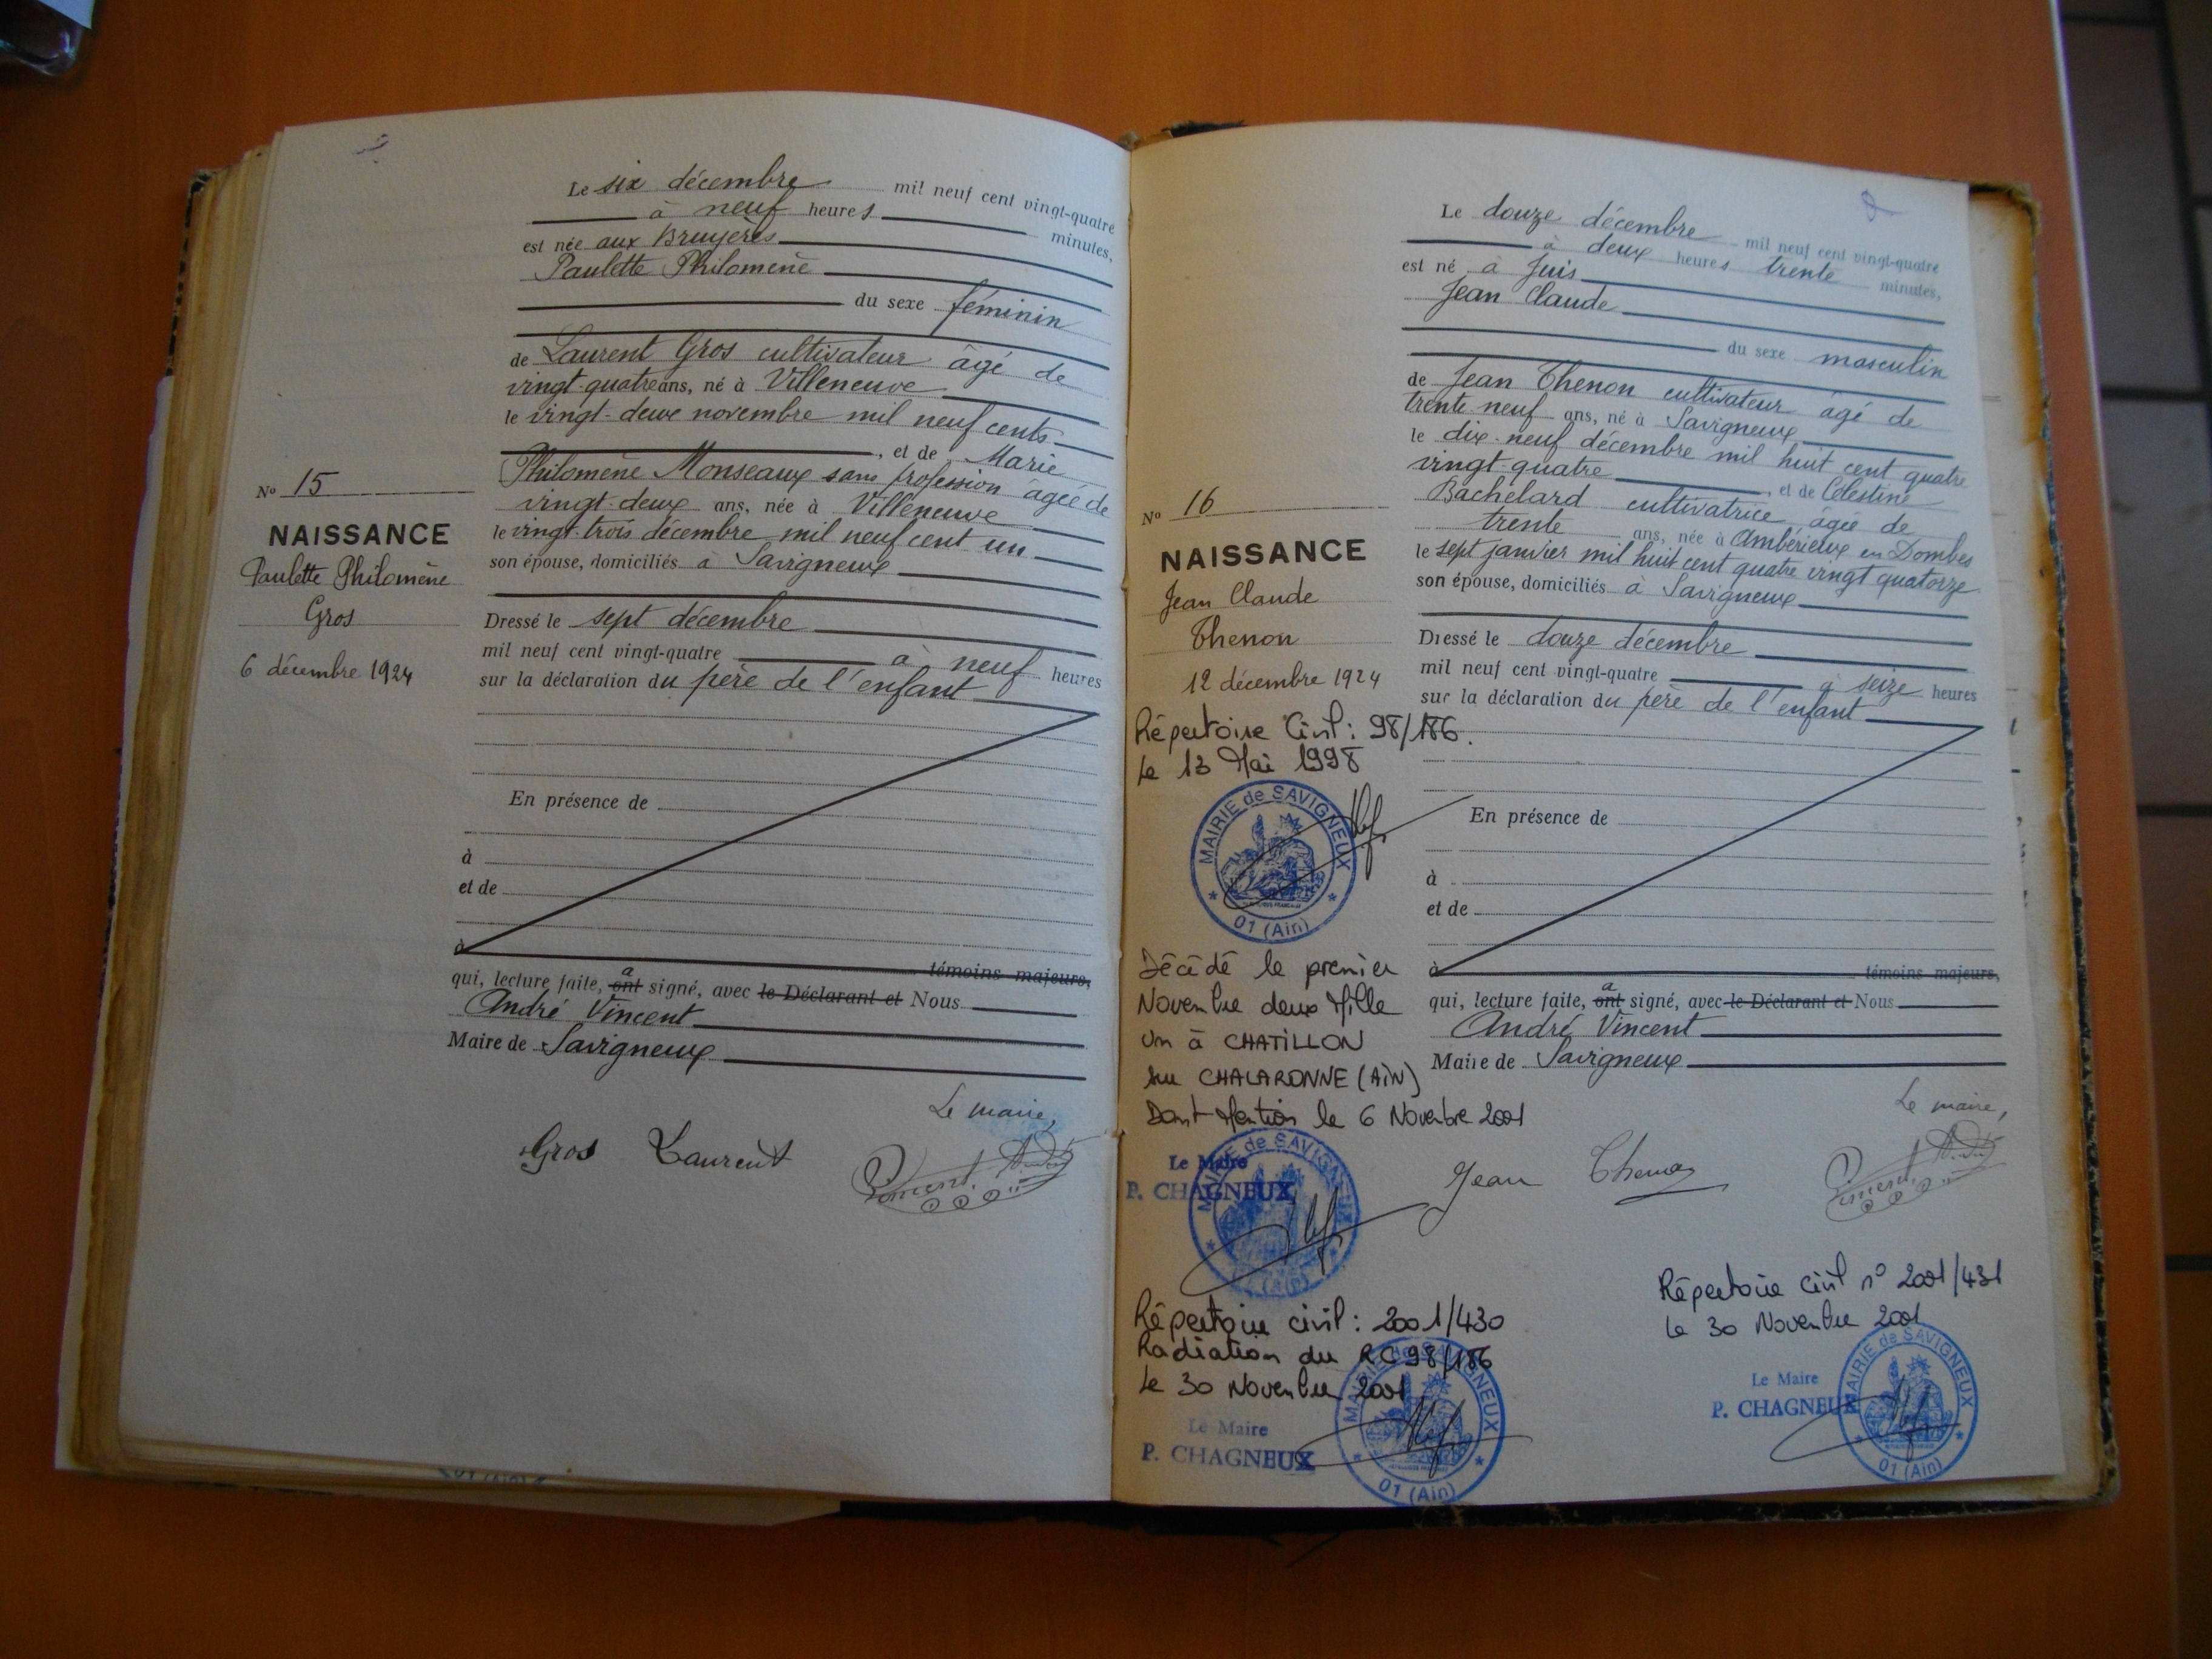 Le six décembre mil neuf cent vingt-quatre
à neuf heures minutes,
est née aux Bruyères
Paulette Philomène
du sexe féminin
de Laurent Gros cultivateur âgé de
vingt-quatre ans, né à Villeneuve
le vingt-deux novembre mil neuf cents
, et de Marie
Philomène Monseaux sans profession âgée de
vingt-deux ans, née à Villeneuve
le vingt-trois décembre mil neuf cent un
son épouse, domiciliés à Savigneux
Nº 15
NAISSANCE
Paulette Philomène
Gros
6 décembre 1924
Dressé le sept décembre
mil neuf cent vingt-quatre à neuf heures
sur la déclaration du père de l'enfant
En présence de
à
et de
à
témoins majeurs,
qui, lecture faite, ont a signé, avec le Déclarant et Nous
André Vincent
Maire de Savigneux
Le maire,
Gros Laurent
Vincent André
Le douze décembre mil neuf cent vingt-quatre
à deux heures trente minutes,
est né à Juis
Jean Claude
du sexe masculin
de Jean Thenon cultivateur âgé de
trente neuf ans, né à Savigneux
le dix-neuf décembre mil huit cent quatre
vingt-quatre , et de Célestine
Bachelard cultivatrice âgée de
trente ans, née à Ambérieux en Dombes
le sept janvier mil huit cent quatre vingt quatorze
son épouse, domiciliés à Savigneux
Nº 16
NAISSANCE
Jean Claude
Thenon
12 décembre 1924
Dressé le douze décembre
mil neuf cent vingt-quatre à seize heures
sur la déclaration du père de l'enfant
En présence de
à
et de
à
témoins majeurs,
qui, lecture faite, ont a signé, avec le Déclarant et Nous
André Vincent
Maire de Savigneux
Le maire,
Jean Thenon
Vincent André
Répertoire Civil : 98/186.
Le 13 Mai 1998
MAIRIE de SAVIGNEUX
01 (Ain)
Décédé le premier
Novembre deux Mille
un à CHATILLON
sur CHALARONNE (AIN)
Dont Mention le 6 Novembre 2001
Le Maire
P. CHAGNEUX
MAIRIE de SAVIGNEUX
01 (Ain)
Répertoire civil : 2001/430
Radiation du RC 98/186
Le 30 Novembre 2001
Le Maire
P. CHAGNEUX
MAIRIE de SAVIGNEUX
01 (Ain)
Répertoire Civil nº 2001/431
Le 30 Novembre 2001
Le Maire
P. CHAGNEUX
MAIRIE de SAVIGNEUX
01 (Ain)